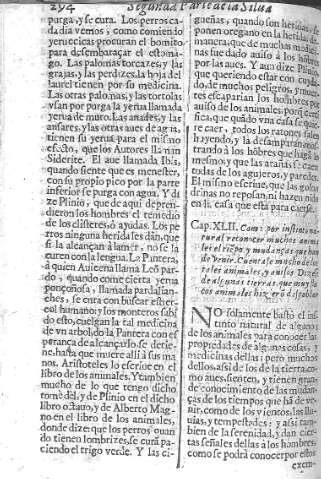 294 Segunda Parte de la Silua
purga, y se cura. Los perros ca-
da dia vemos, como comiendo
yeruezicas procuran el bomito
para desembaraçar el estoma-
go. Las palomas torcazes, y las
grajas, y las perdizes, la hoja del
laurel tienen por su medicina.
Las otras palomas, y las tortolas
vsan por purga la yerua llamada
yerua de muro. Las anades, y las
ansares, y las otras aues de agua,
tienen su yerua para el mismo
efecto, que los Autores llaman
Siderite. El aue llamada Ibis,
quando siente que es menester,
con su propio pico por la parte
inferior se purga con agua. Y di
ze Plinio, que de aqui depren-
dieron los hombres el remedio
de los clisteres, ò ayudas. Los pe
rros ninguna herida les dàn, que
si la alcançan à lamer, no se la
curen con la lengua. La Pantera,
à quien Auicena llama Leo par-
do, quando come cierta yerua
ponçoñosa, llamada pardalian-
ches, se cura con buscar estier-
col humano; y los monteros sabi
do esto, cuelgan la tal medicina
de vn arbol, do la Pantera con es
perança de alcançarlo, se detie-
ne, hasta que muere alli à sus ma
nos. Aristoteles lo escriue en el
libro de los animales. Y tambien
mucho de lo que tengo dicho
tomè dèl, y de Plinio en el dicho
libro octauo, y de Alberto Mag-
no en el libro de los animales,
donde dize que los perros quan
do tienen lombrizes, se cura pa-
ciendo el trigo verde. Y las ci-
gueñas, quando son heridas, se
ponen oregano en la herida: de
manera, que de muchas medici-
nas fue dado auiso à los hõbres
por las aues. Y aun dize Plinio,
que queriendo estar con cuyda-
do, de muchos peligros, y muer-
tes escaparian los hombres por
auiso de los animales, porq̃ cer-
tifica, que quãdo vna casa se quie
re caer, todos los ratones salen
huyendo, y la desamparan, mos-
trando à los hõbres que hagã lo
mesmo; y que las arañas se caen
todas de los agujeros, y paredes.
El mismo escriue, que las golon
drinas no reposan, ni hazen nido
en la casa que està para caerse.
Cap. XLII. Como por instinto na-
tural reconocen muchos anima
les el tiempo y mudanças que han
de venir. Cuenta se mucho de los
tales animales, y auisos. Dizese
de algunas tierras, que muy li-
dos animales hizierõ despoblar
NO solamente basto el ins
tinto natural de algunos
de los animales para conocer las
propiedades de algunas cosas, y
medicinas dellas; pero muchos
dellos, assi de los de la tierra, co-
mo aues, sienten, y tienen gran-
de conocimiento de las mudan-
ças de los tiempos que hà de ve-
nir, como de los vientos, las llu-
uias, y tempestades; y assi tam-
bien de la serenidad, y dan cier-
tas señales dellas à los hombres,
como se podrà conocer por estos
exem-